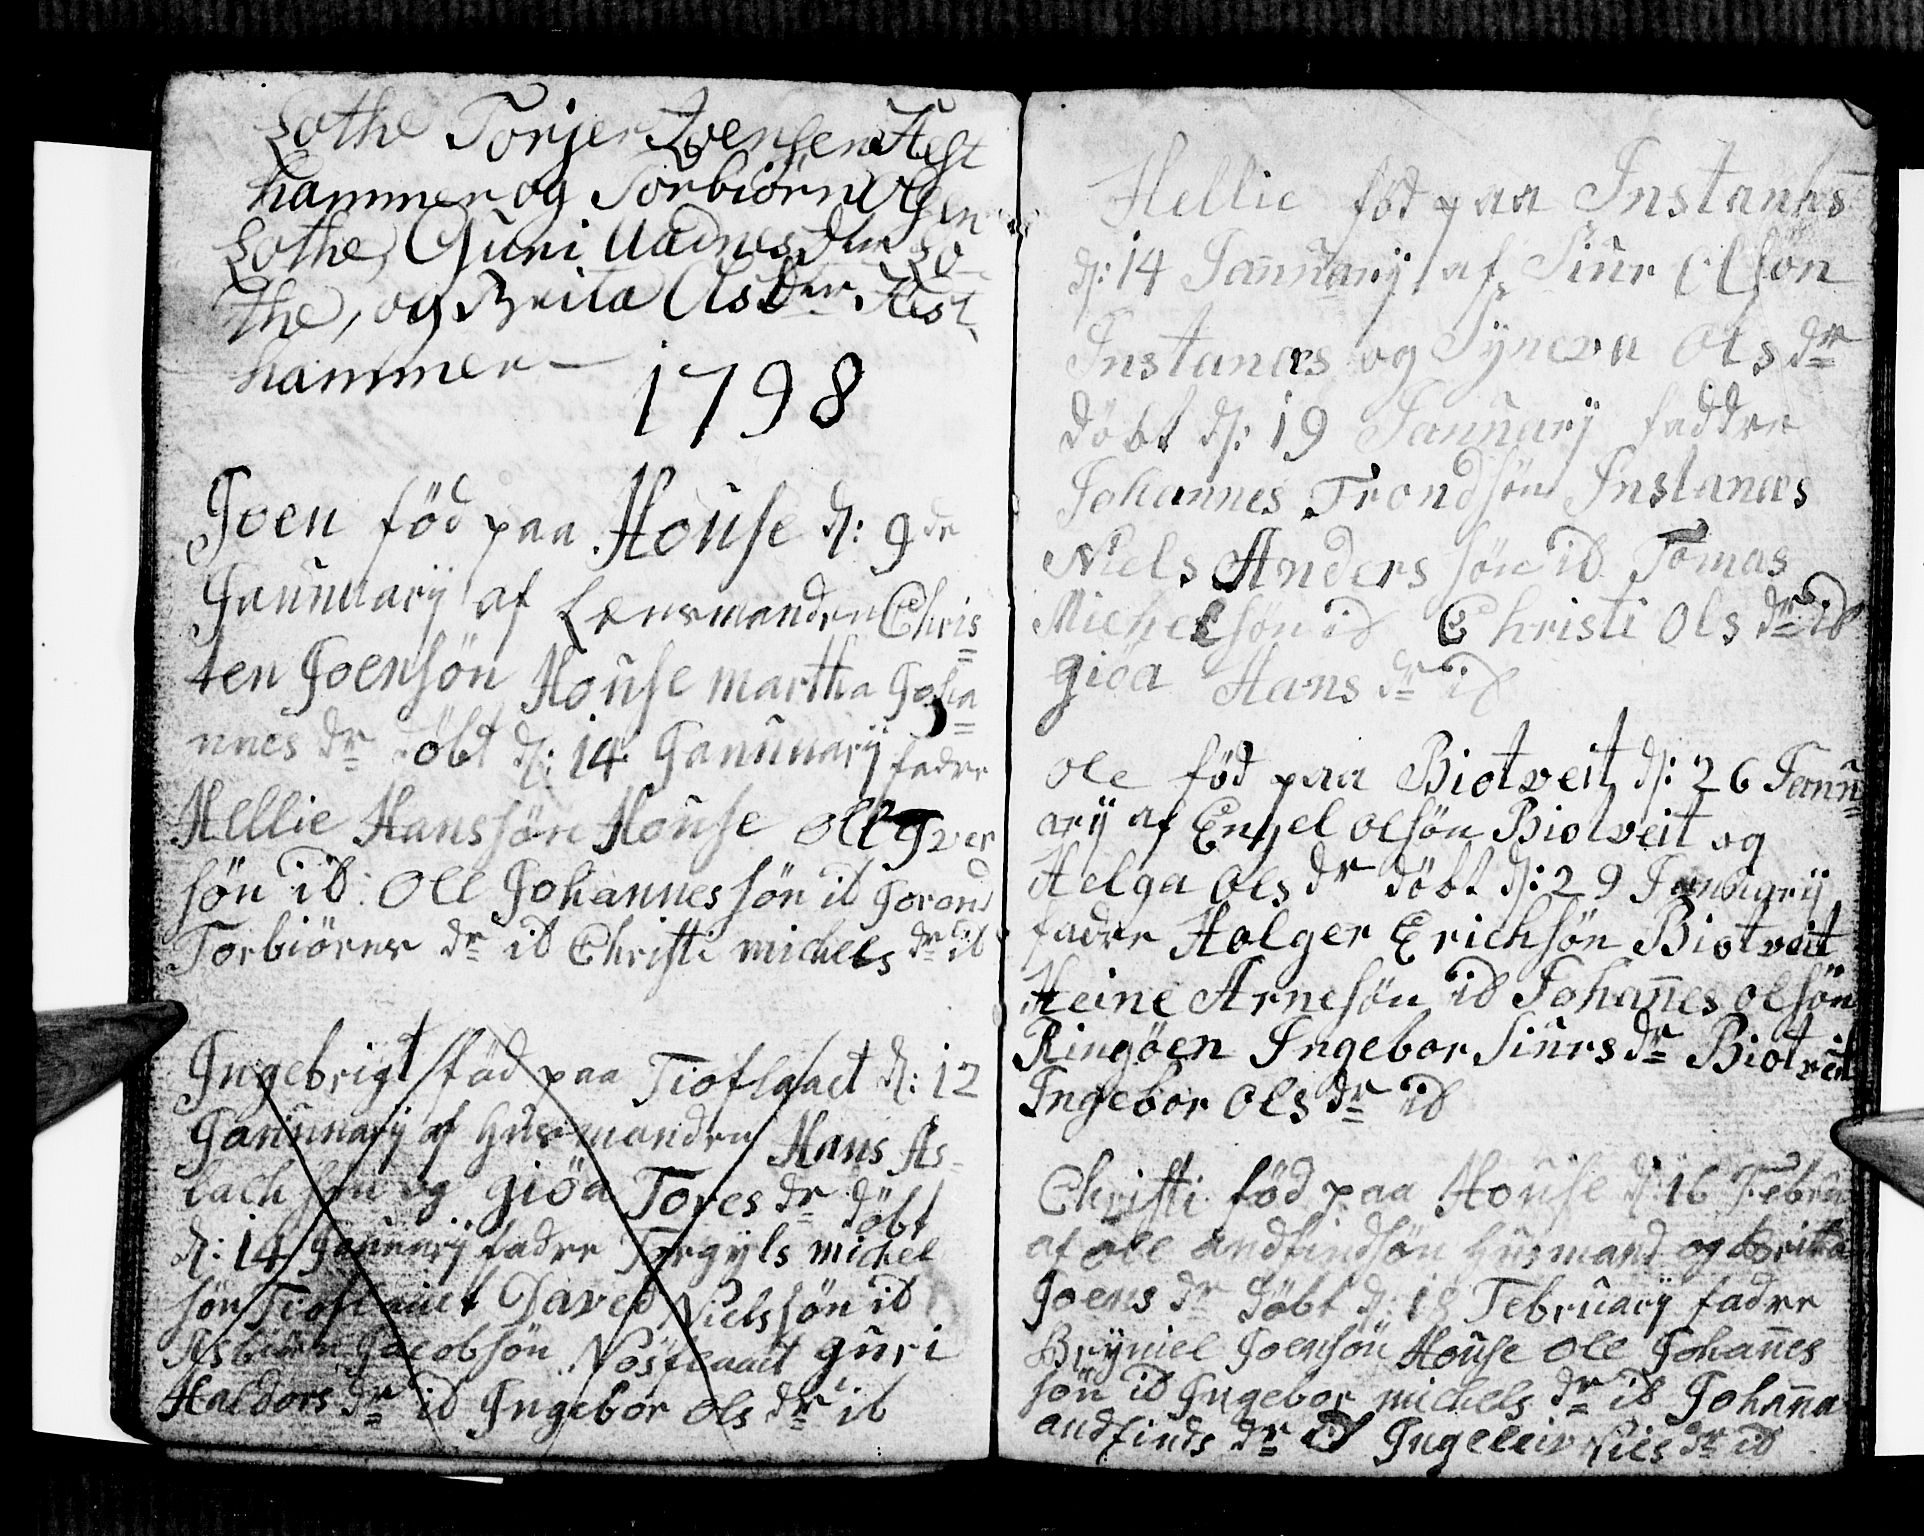 Lothe Torjer Ivensen Hest
hammer og Torbiørn Olsen
Lothe, Guri Aadnes dttr Lo-
the, og Brita Olsdtr Hest,
hammer —
1798
Joen föd paa House d: 9de
Januuarÿ af Lensmanden Chris
ten Joensön House martha Joha
nnes dr döbt d: 14 Januuarÿ fadre
Hellie Hanssön House Olle Iver
sön ib: Ole Johannes sön ib Jorond
Torbiörns dr ib Christi michels dr ib
Ingebrigt föd paa Tioflaaet d: 12
Januuarÿ af Husmanden Hans As-
lach sön og giöa Tores dr döbt
d: 14 Januarÿ fadre Torgÿls michel
sön Tioflaaet Daved Nielssön ib
Asbiörn Jacobsön Nösflaaet guri
Haldors dr ib Ingebor Ols dr ib
Hellie föd paa Instanæs
d: 14 Jannuarÿ af Siur Olsön
Instanæs og Sÿneva Ols dr
döbt d: 19 Januarÿ faddre
Johannes Trondsön Instanæs
Niels Anders sön ib Tomas
Michelsön ib Christi Ols dr ib
giöa Hans dr ib
Ole föd paa Biotveit d: 26 Janu
arÿ af Engel olsön Biotveit og
Helga Ols dr döbt d: 29 Januarÿ
fadre Holger Erichsön Biotveit
Heine Arnesön ib Johan̄es olsön
Ringöen Ingebor Siurs dr Biotveit
Ingebor Ols dr ib
Christi föd paa House d: 16 Febru
af ole andfindsön Husmand og Britha
Joens dr döbt d: 18 Februarÿ fadre
Brÿniel Joensön House Ole Johan̄es
sön ib Ingebor michels dr ib Johan̄a
andfinds dr ib Ingeleiv Nils dr ib